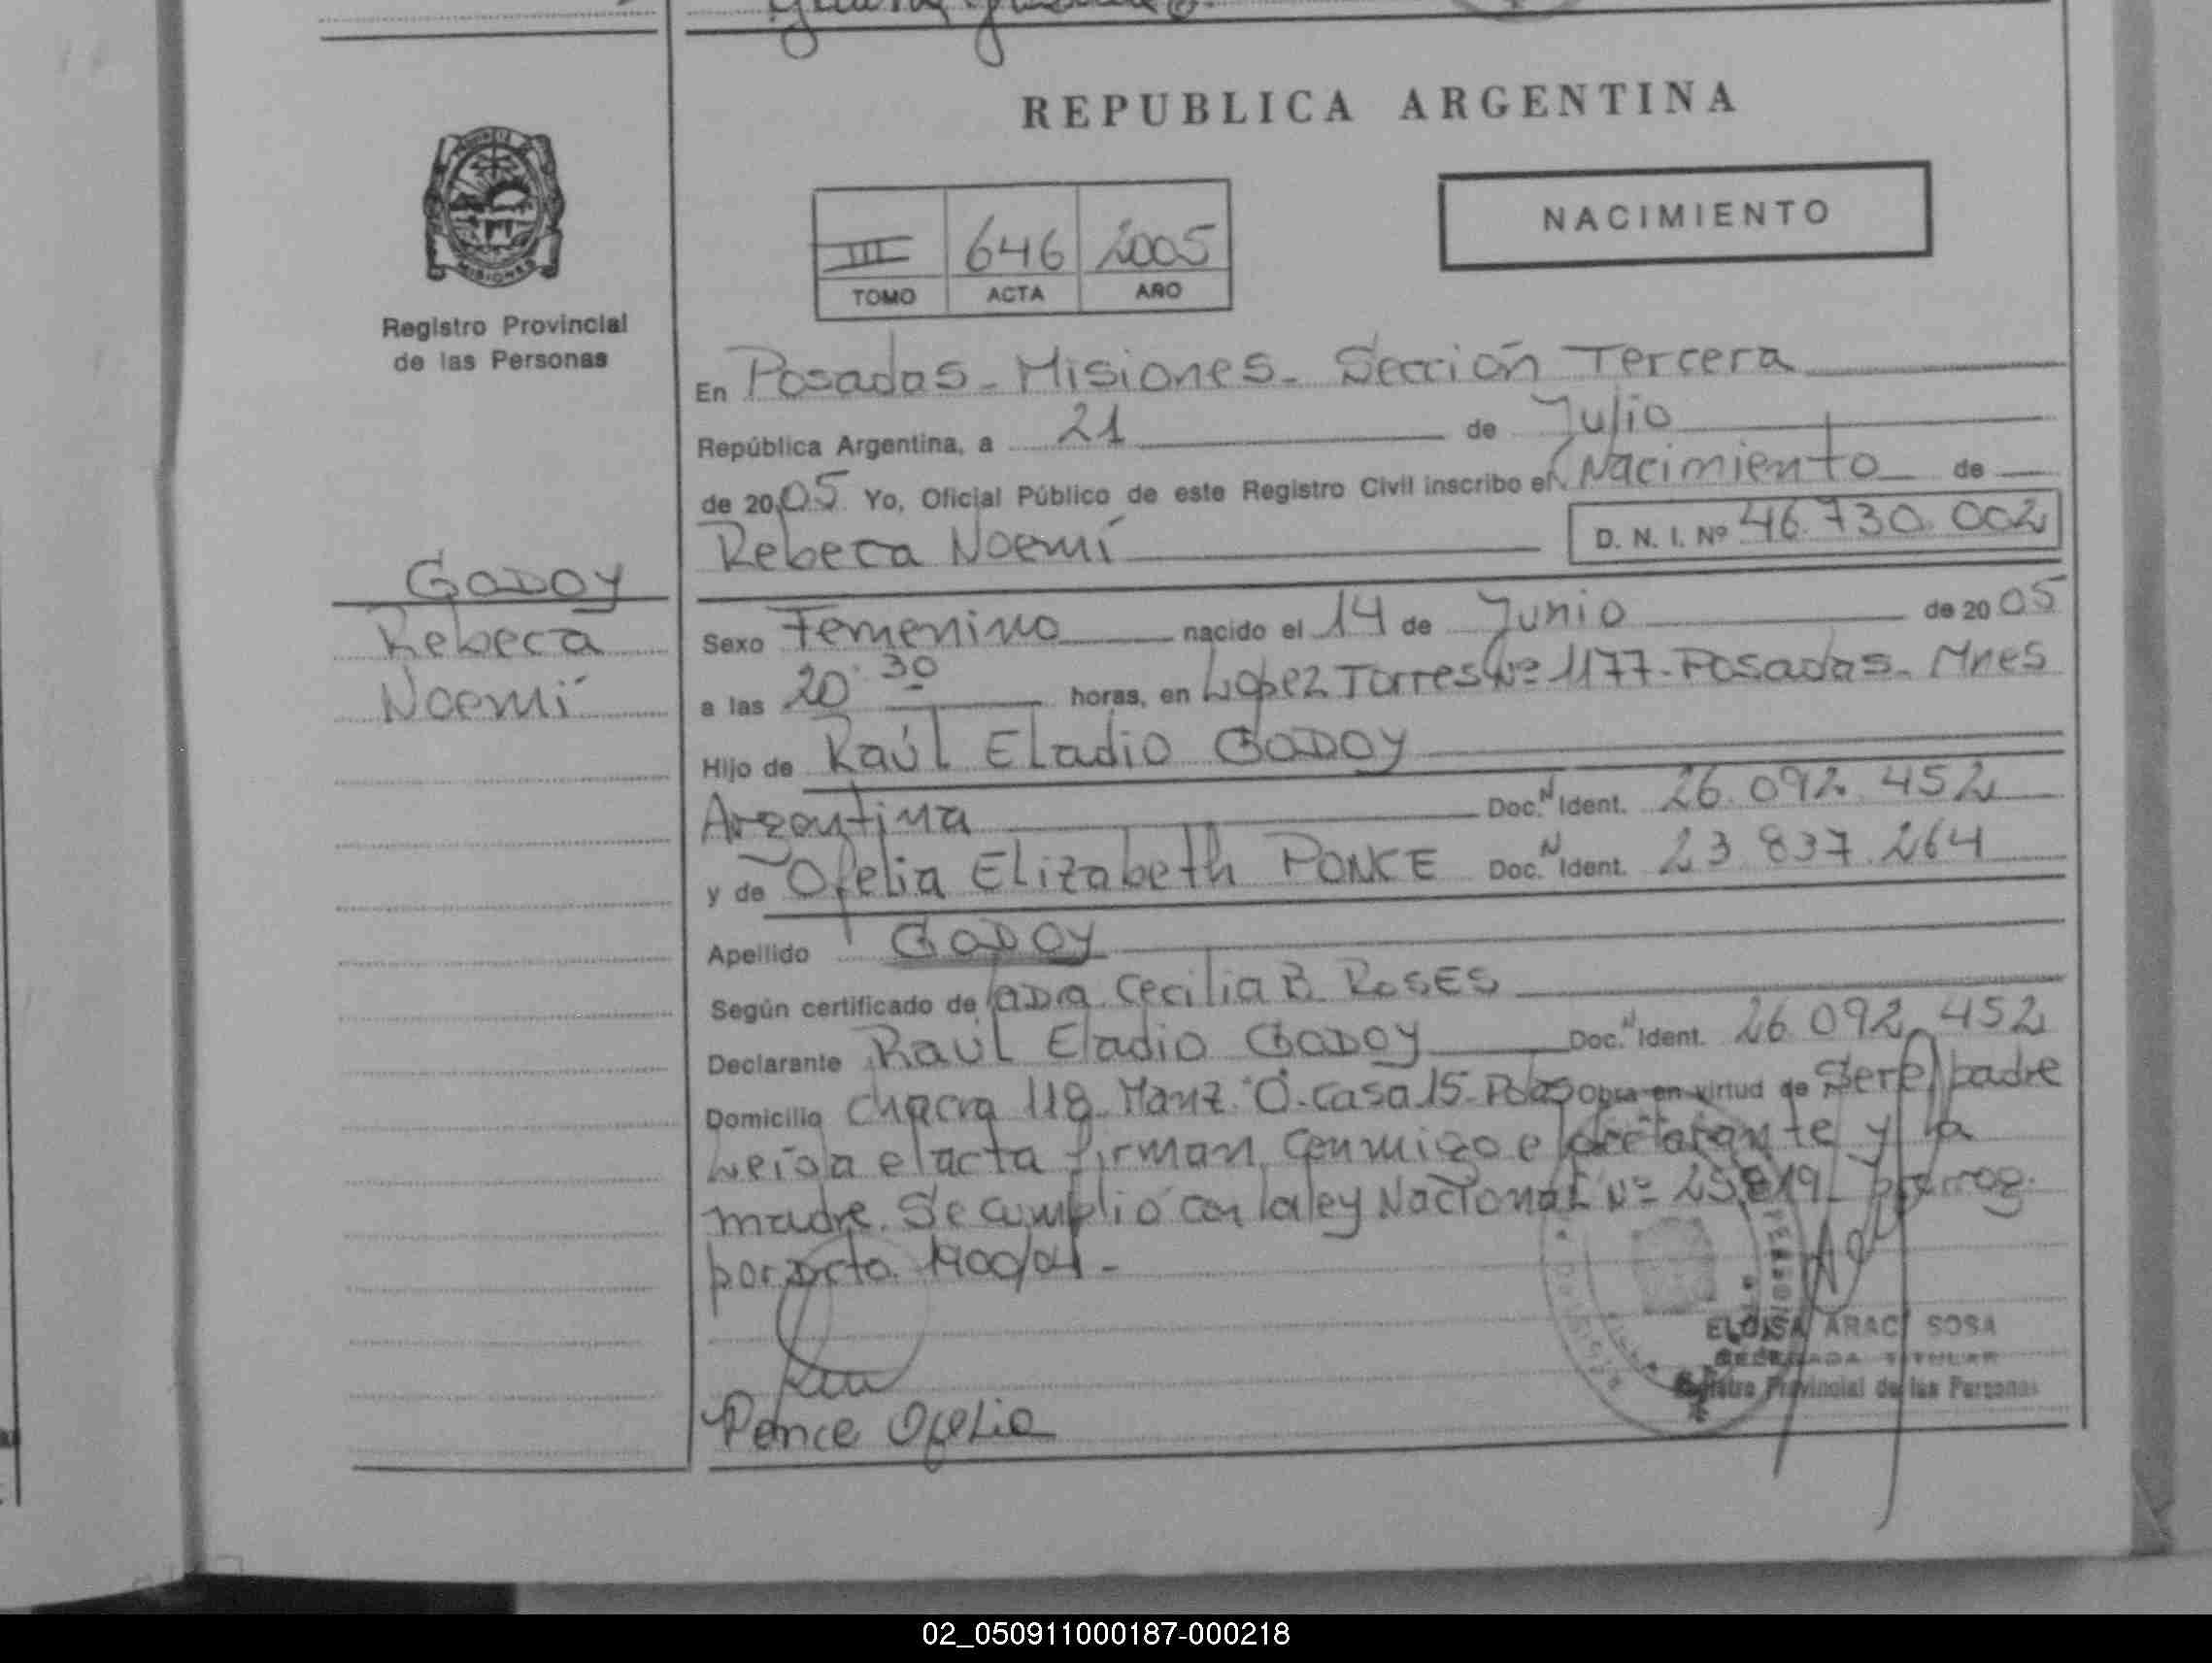 REPUBLICA ARGENTINA
NACIMIENTO
III 646 2005
TOMO ACTA AÑO
MISIONES
Registro Provincial
de las Personas
GODOY
Rebeca
Noemí
En Posadas - Misiones - Sección Tercera
República Argentina, a 21 de Julio
de 2005 Yo, Oficial Público de este Registro Civil inscribo el Nacimiento de
Rebeca Noemí D. N. I. Nº 46.730.002
Sexo Femenino nacido el 14 de Junio de 2005
a las 20:30 horas, en Lopez Torres Nº 1177 - Posadas - Mnes
Hijo de Raúl Eladio GODOY
Argentina Doc. N Ident. 26.092.452
y de Ofelia Elizabeth PONCE Doc. N Ident. 23.837.264
Apellido GODOY
Según certificado de la DRA Cecilia B. ROSES
Declarante Raúl Eladio GODOY Doc. N Ident. 26.092.452
Domicilio Chacra 118. Manz "O". Casa 15 - Pdas Obra en virtud de Ser el padre
Leída el acta firman conmigo el declarante y la
madre. Se cumplió con la ley Nacional Nº 25.819
por Dcto. 1400/04 -
Ponce Ofelia
ELOISA ARACI SOSA
DELEGADA TITULAR
Registro Provincial de las Personas
02_050911000187-000218